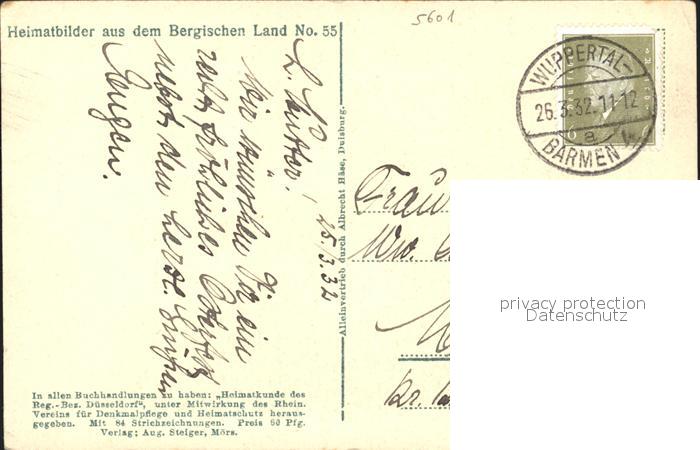 5601
Heimatbilder aus dem Bergischen Land No. 55
WUPPERTAL-
26.3.32.11-12
a
BARMEN
6
25.3.32
L. Mutter!
Wir wünschen Dir ein
recht fröhliches Osterfest
nebst den herzl. Grüßen
Eugen.
Alleinvertrieb durch Albrecht Häse, Duisburg.
Frau
Ww.
In allen Buchhandlungen zu haben: „Heimatkunde des
Reg.-Bez. Düsseldorf", unter Mitwirkung des Rhein.
Vereins für Denkmalpflege und Heimatschutz heraus-
gegeben. Mit 84 Strichzeichnungen. Preis 90 Pfg.
Verlag: Aug. Steiger, Mörs.
privacy protection
Datenschutz